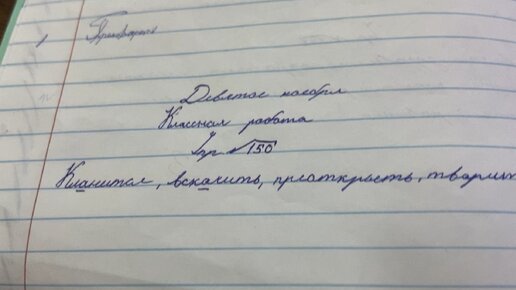 Девятое ноября
Классная работа
Упр √150
Кланится, вскачить, преоткрыть, твори